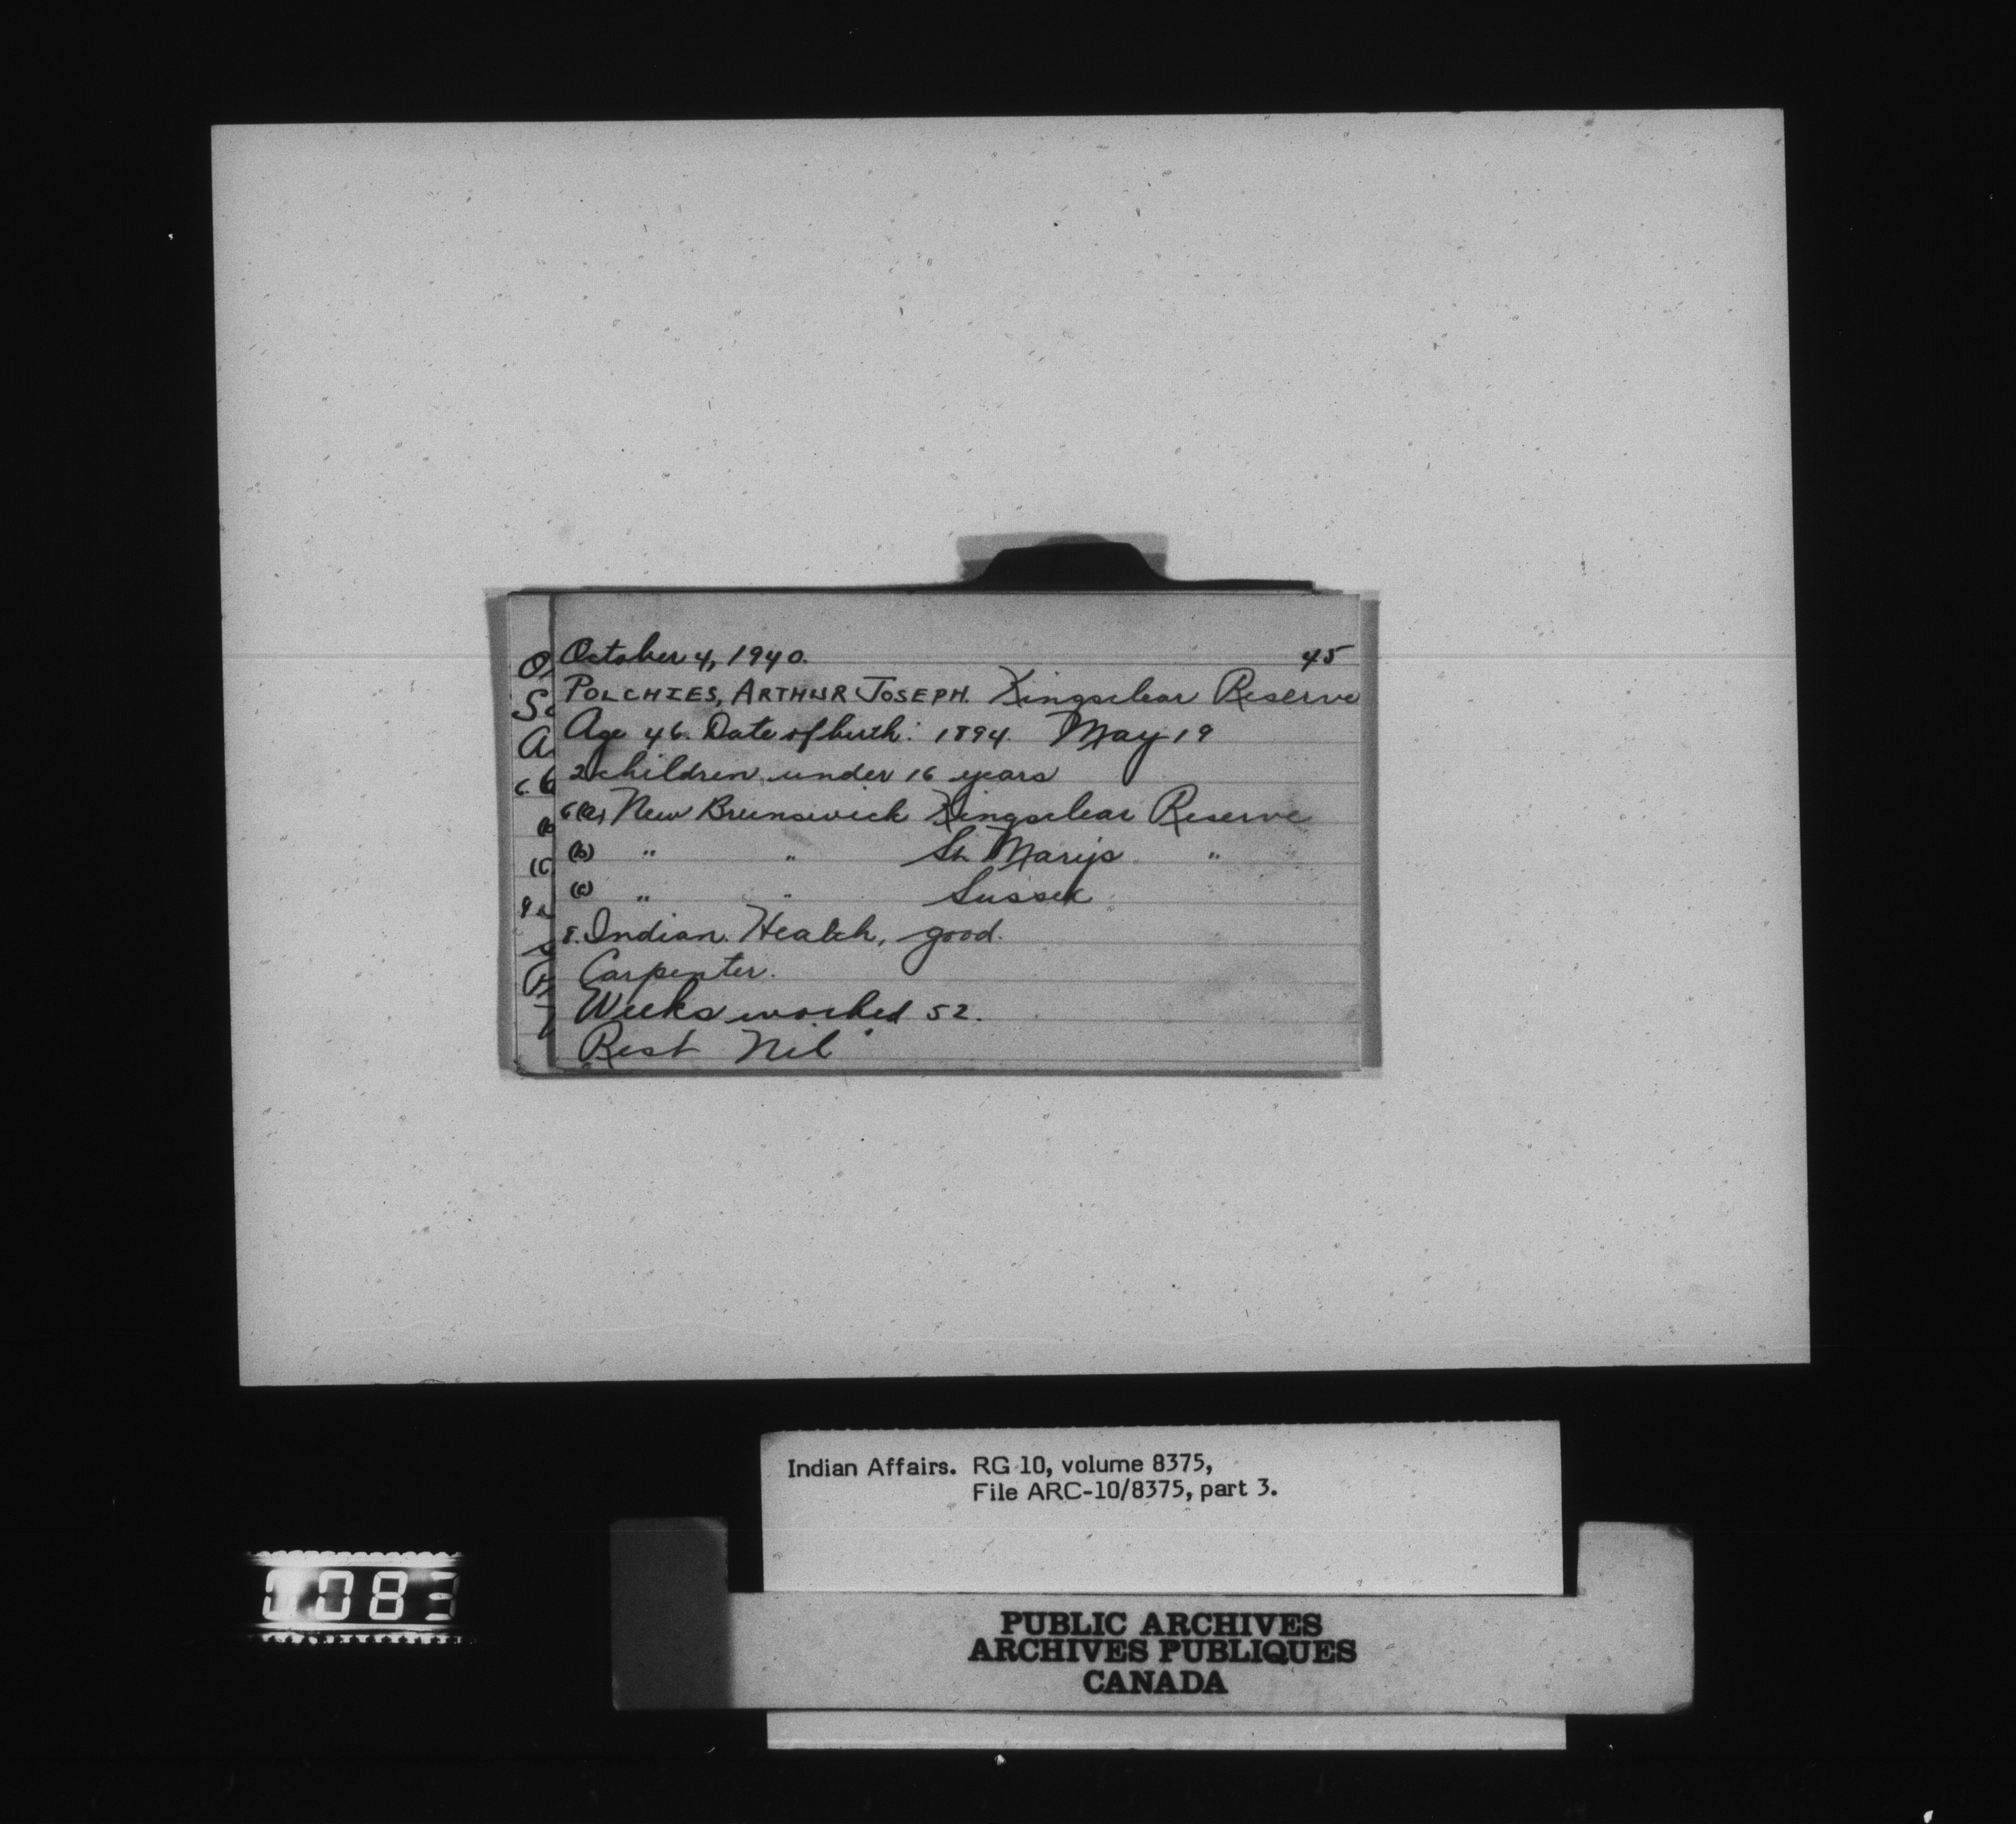 October 4, 1940. 45
POLCHIES, ARTHUR JOSEPH. Kingsclear Reserve
Age 46. Date of birth: 1894. May 19
2 children under 16 years
6(a) New Brunswick Kingsclear Reserve
(b) " " St. Marys "
(c) " " Sussex
8. Indian. Health, good.
Carpenter.
Weeks worked 52.
Rest Nil
Indian Affairs. RG 10, volume 8375,
File ARC-10/8375, part 3.
PUBLIC ARCHIVES
ARCHIVES PUBLIQUES
CANADA
0083